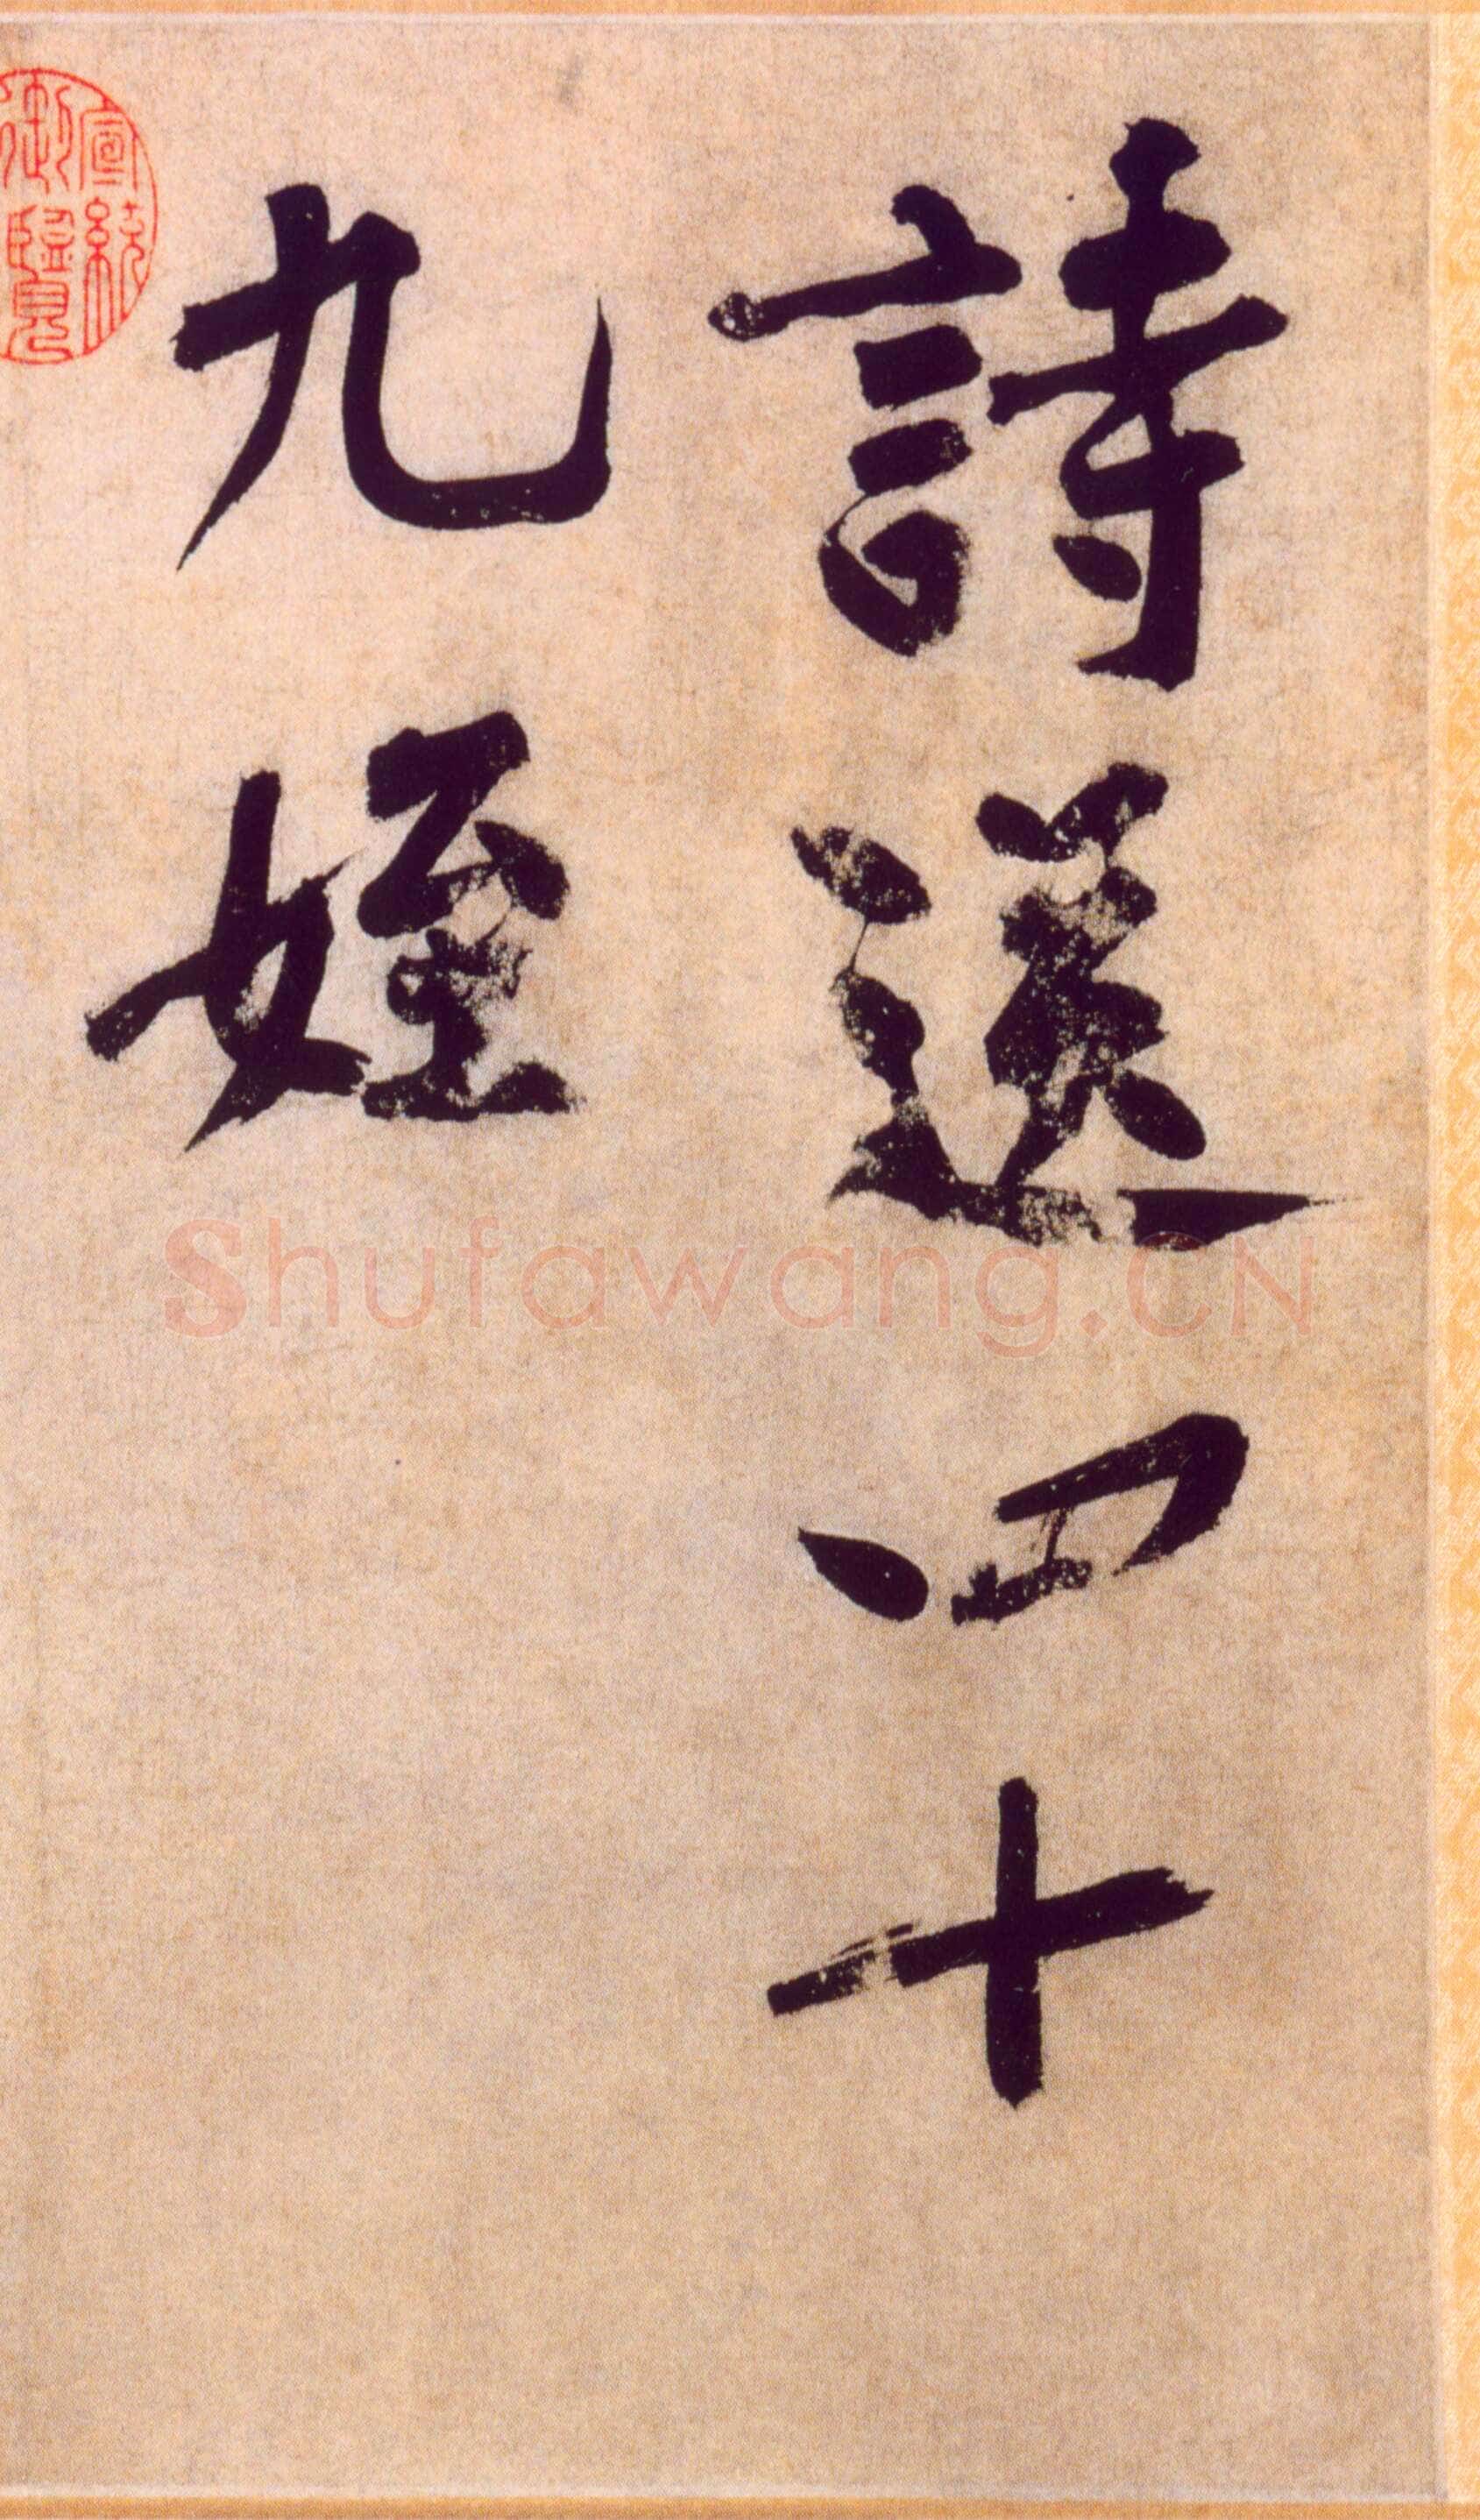 詩送四十
九姪
宣統
御覽
Shufawang.CN